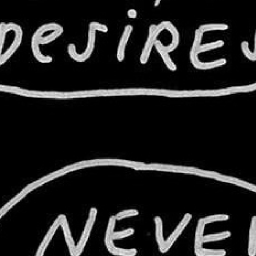 DesiRES
NEVER